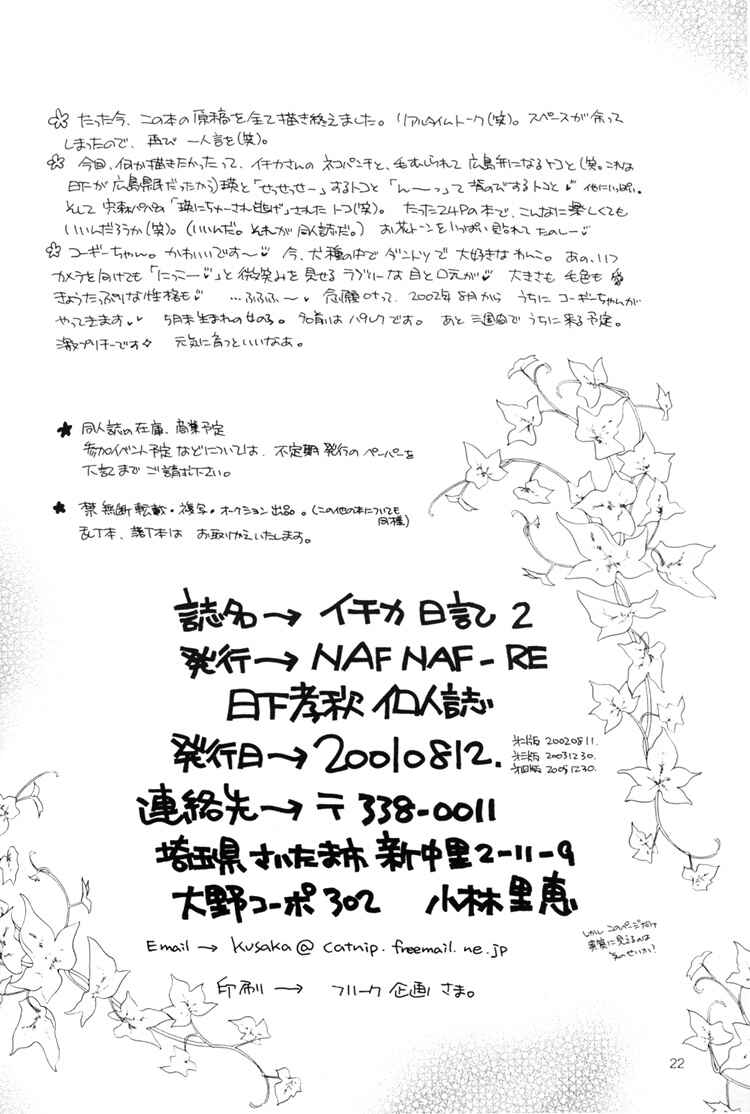 ☆ たった今、この本の原稿を全て描き終えました。リアルタイムトーク(笑)。スペースが余って
しまったので、再び一人言を(笑)。
☆ 今回、何が描きたかったって、イチカさんのネコパンチと、毛むしられて広島弁になるトコと(笑。これは
日下が広島県民だったから)瑛と「せっせっせー」するトコと「ん〜っ」て 伸びするトコと♥ 他にいっぱい。
そして 宍森パパの「瑛にちゅーされ された トコ(笑)。 たった24Pの本で、こんなに楽しくても
いいんだろうか(笑)。(いいんだ。それが同人誌だ。) お花トーンをいっぱい貼られてたのしー♥
☆ コーギーちゃん。かわいいです〜♥ 今、犬種の中でダントツで大好きなわんこ。あの、いつ
カメラを向けても「にっこー♥」と微笑みを見せるラブリーな目と口元が♥ 大きさも毛色も 愛
きょうたっぷりな性格も♥ …ふふふ〜♥ 念願叶って、2002年8月から うちにコーギーちゃんが
やってきます♥ 5月末生まれの女の子。名前は です。 あと三週間でうちに来る予定。
激プリチーです☆ 元気に育つといいなあ。
★ 同人誌の在庫、商業予定
参加イベント予定などについては、不定期発行のペーパーを
下記までご請求下さい。
★ 禁無断転載・複写・オークション出品。(この他の本についても
同様)
乱丁本、落丁本は お取りかえいたします。
誌名→ イチカ日記2
発行→ NAF NAF-RE
日下孝秋 個人誌
発行日→20010812.
第二版 20020811.
第三版 20031230.
第四版 20051230.
連絡先→〒338-0011
埼玉県さいたま市新中里2-11-9
大野コーポ302 小林里恵
Email → kusaka@catnip.freemail.ne.jp
しかし このページだけ
真実に見えるのは
気のせいかい?
印刷 → フリーク企画さま。
22